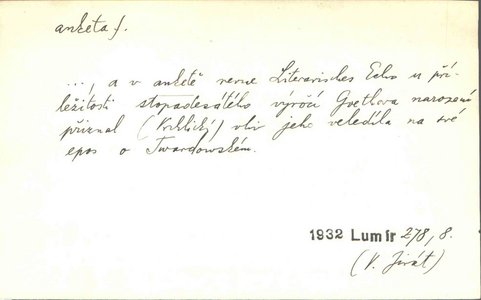 anketa f.
..., a v anketě revue Literarisches Echo u pří-
ležitosti stopadesátého výročí Goethova narození
přiznal (Vrchlický) vliv jeho veledíla na své
epos o Twardowském.
1932 Lumír 278, 8.
(V. Jirát)